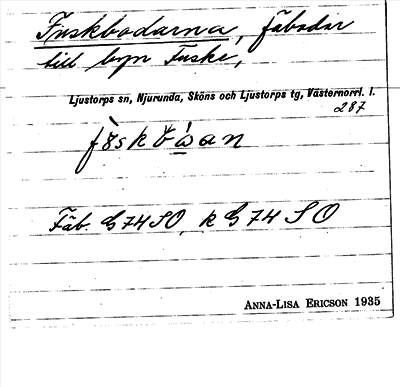 Fuskbodarna, fäbodar
till byn Fuske,
Ljustorps sn, Njurunda, Sköns och Ljustorps tg, Västernorrl. l.
287
Fäb. G74SO, k G74 SO
ANNA-LISA ERICSON 1935